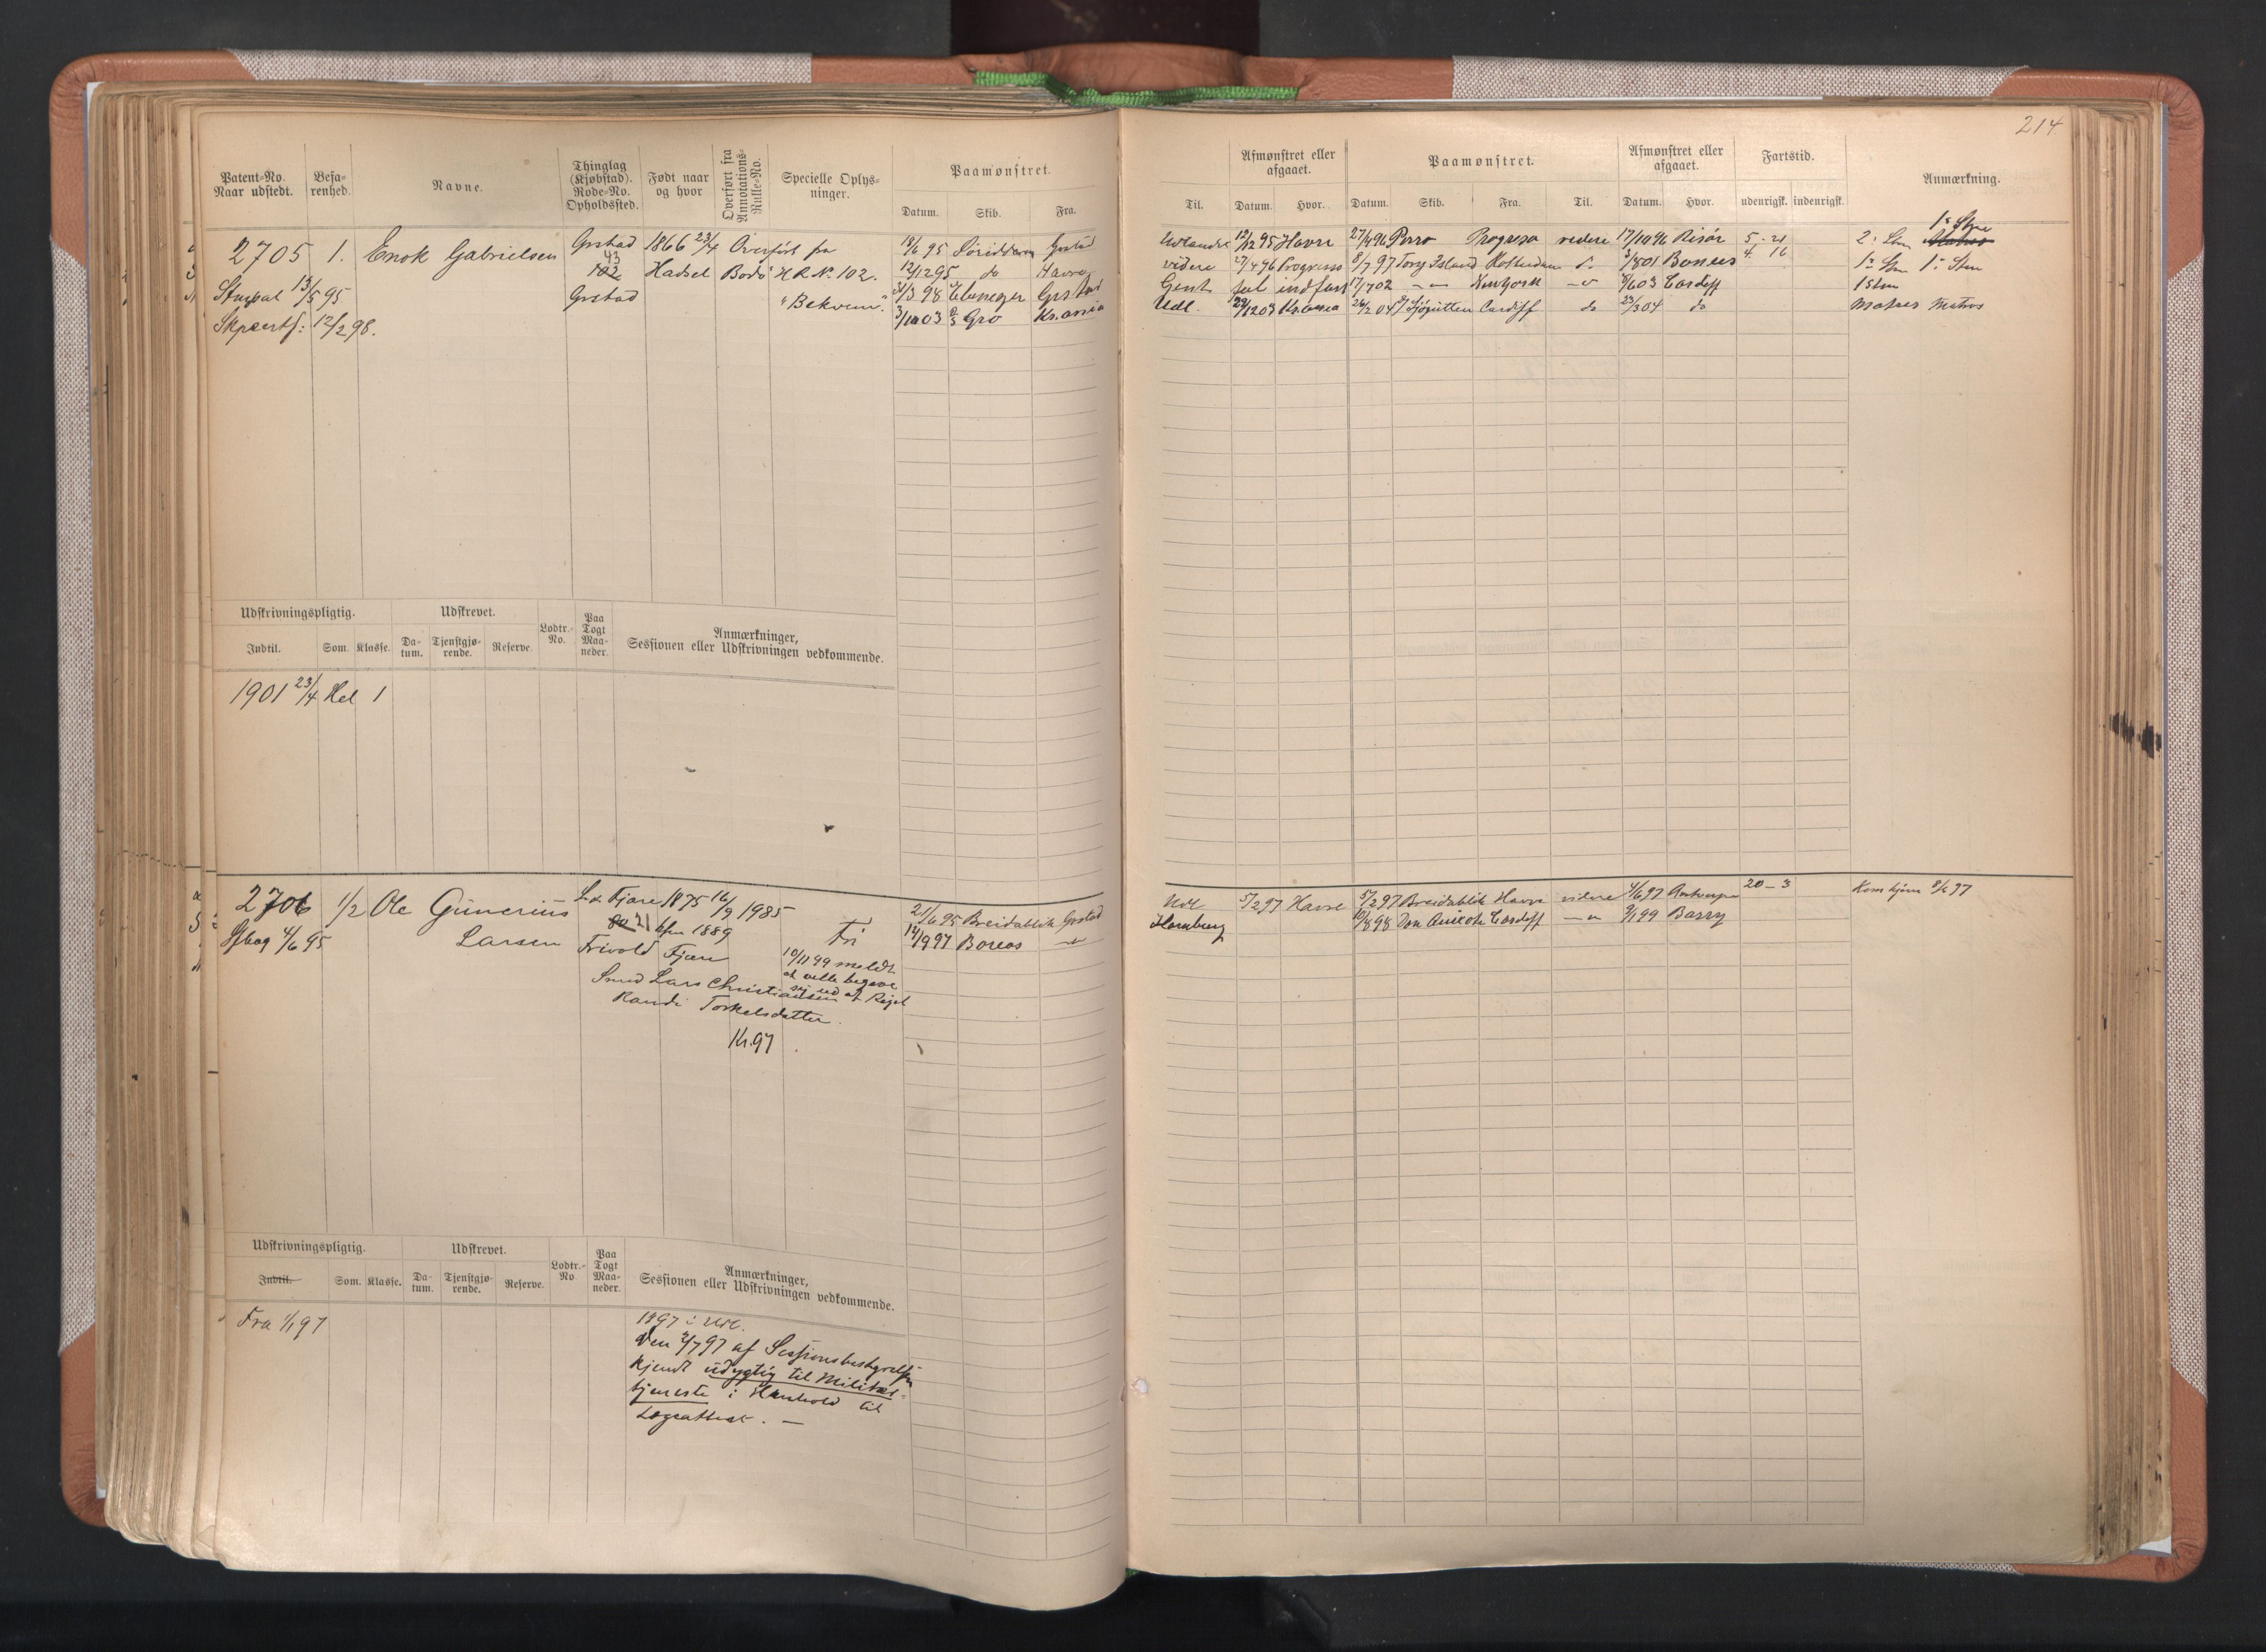 214
Patent-No. Naar udstedt.
Befarenhed.
Navne.
Thinglag (Kjøbstad). Rode-No. Opholdssted.
Født naar og hvor
Overført fra Annotations-Rulle-No.
Specielle Oplysninger.
Paamønstret.
Datum. Skib. Fra.
Til.
Afmønstret eller afgaaet.
Datum. Hvor.
Paamønstret.
Datum. Skib. Fra. Til.
Afmønstret eller afgaaet.
Datum. Hvor.
Fartstid.
udenrigsk. indenrigsk.
Anmærkning.
2705 1. Enok Gabrielsen Grstad 1866 23/4 Overført fra
43
102 Hadsel Bodø HR No. 102.
Grstad "Bekvem".
13/5 95
12/2 98.
18/6 95 Grstad
12/12 95 do Havre
31/3 98 Ebenezer Grstad
3/10 03 Gro Kr.ania
Udlandet 12/12 95 Havre 27/4 96 Progreso videre 17/10 96 Risør 5 - 21
videre 27/4 96 Progreso 8/7 97 Tory Island Rotterdam do /8 01 4 16
Gent 17/7 02 Newyork 8/6 03 Cardiff
Udl. 29/12 03 Kr.ania 24/2 04 Cardiff do 23/3 04 do
Matros Matros
Udskrivningspligtig.
Indtil. Som. Klasse.
Udskrevet.
Datum. Tjenstgjørende. Reserve.
Lodtr.-No.
Paa Togt Maaneder.
Anmærkninger, Sessionen eller Udskrivningen vedkommende.
1901 23/4 Hel 1
2706 1/2 Ole Gunerius Larsen L. Fjære 1875 16/9 1985
Sfbog 4/6 95
21 bfn 1889
Frivold Fjære
Fri
10/11 99 meldt
at ville begave
sig ud af Riget
Smed Lars Christiansen
Randi Torkelsdatter.
Kr. 97
21/6 95 Breidablik Grstad
14/9 97 Boreas
Udl 5/2 97 Havre 5/2 97 Breidablik Havre videre 4/6 97 Antwerpen 20-3
Hamburg 10/8 98 Don Quixote Cardiff 9/1 99 Barry
Kom hjem 8/6 97
Udskrivningspligtig.
Indtil. Som. Klasse.
Udskrevet.
Datum. Tjenstgjørende. Reserve.
Lodtr.-No
Paa Togt Maaneder.
Anmærkninger, Sessionen eller Udskrivningen vedkommende.
Fra 1/1 97
1897 i Udl.
Den 2/7 97 af Sessionsbestyrelsen
kjendt udygtig til Militær-
tjeneste i Henhold til
Lægeattest. —